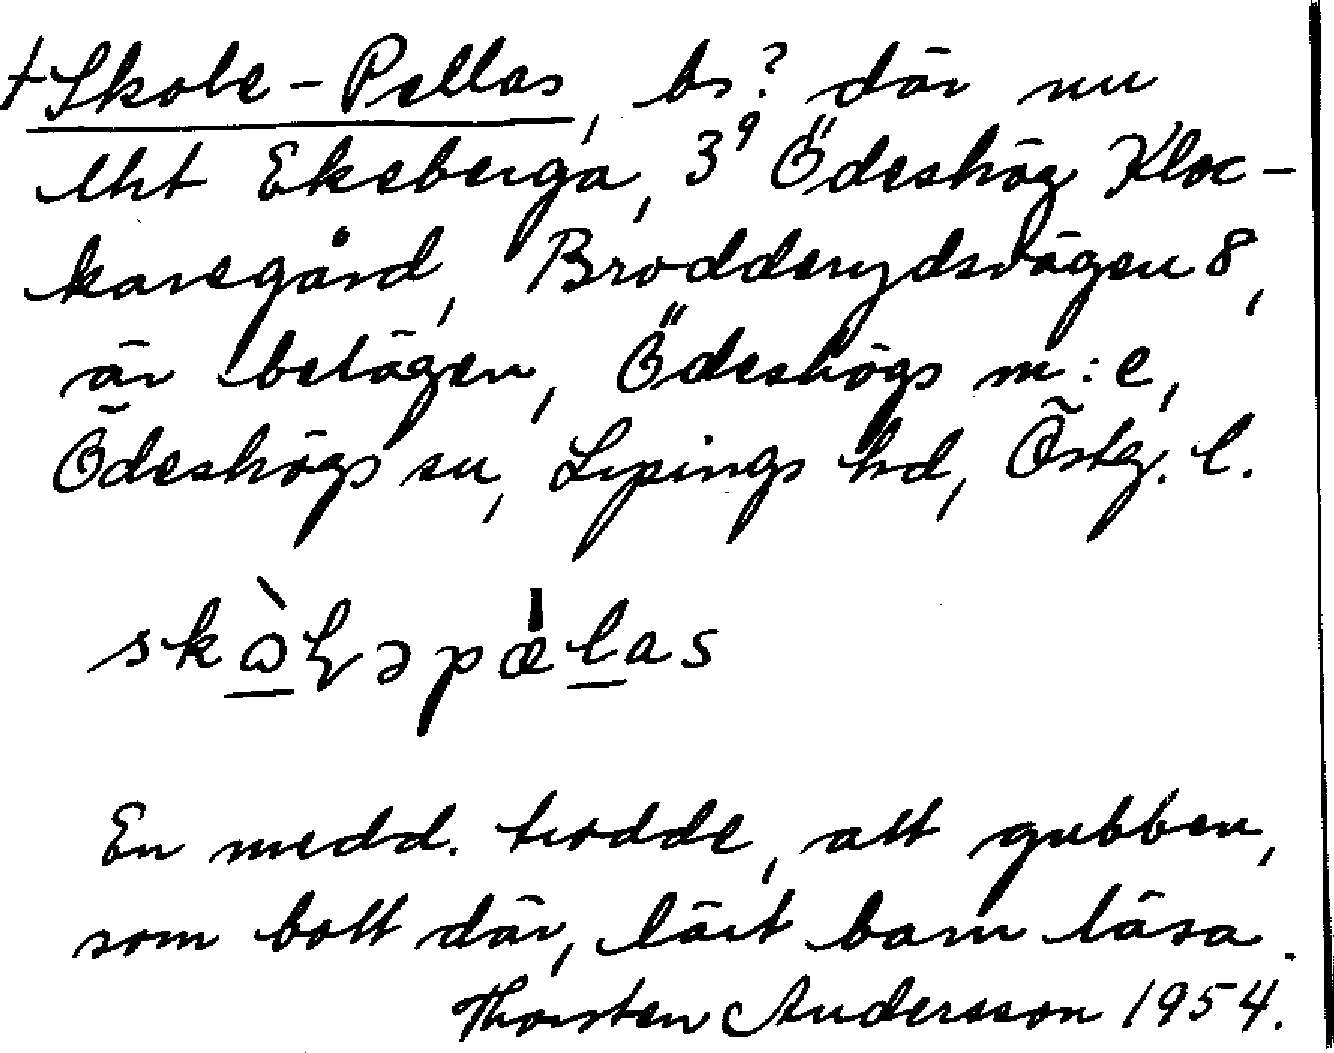 †Skole-Pellas, bs? där nu
lht Ekeberga, 3⁹ Ödeshög Kloc-
karegård, Brodderydsvägen 8,
är belägen, Ödeshögs m:e,
Ödeshögs sn, Lysings hd, Östg. l.
En medd. trodde, att gubben,
som bott där, lärt barn läsa.
Thorsten Andersson 1954.